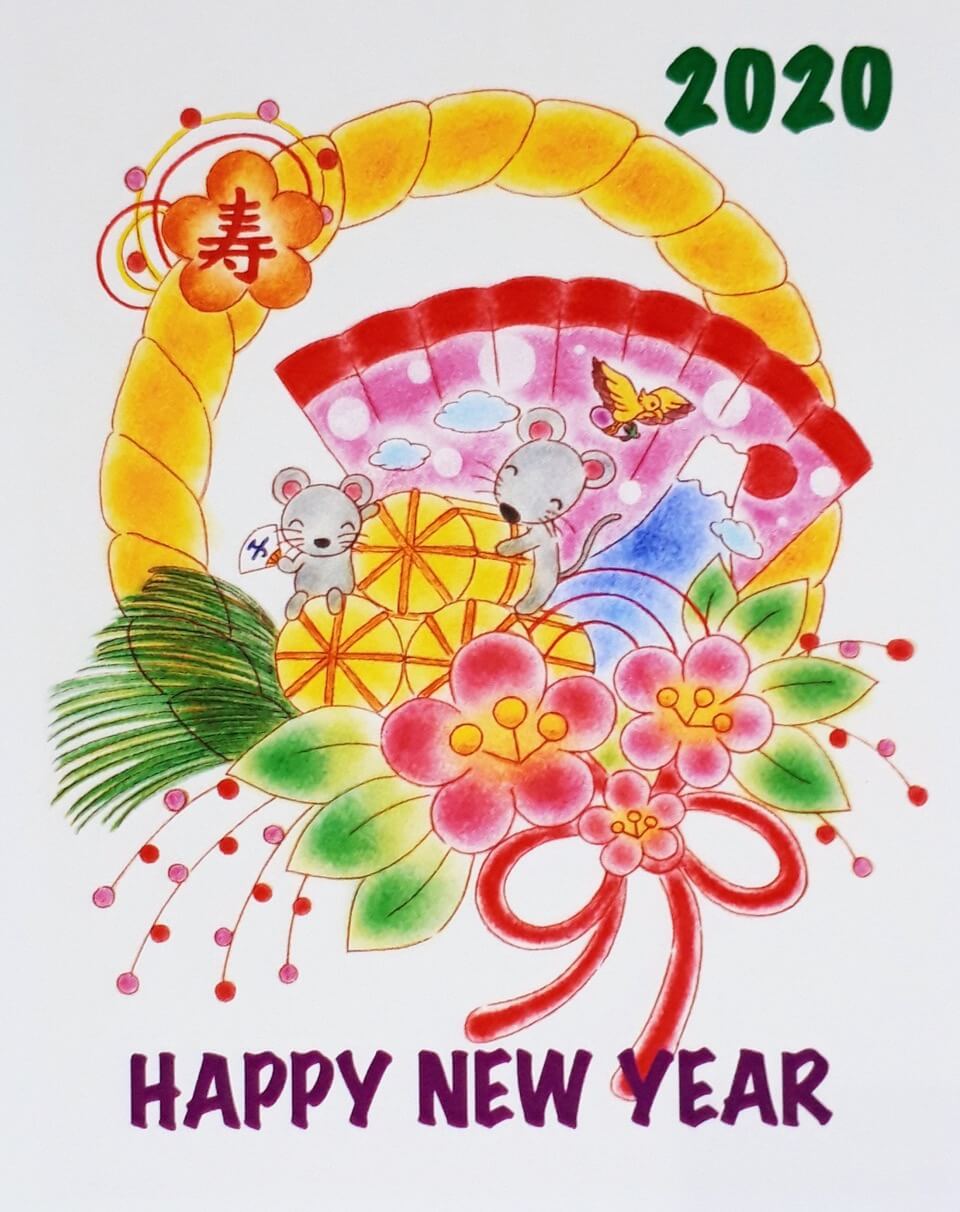 2020
寿
子
HAPPY NEW YEAR